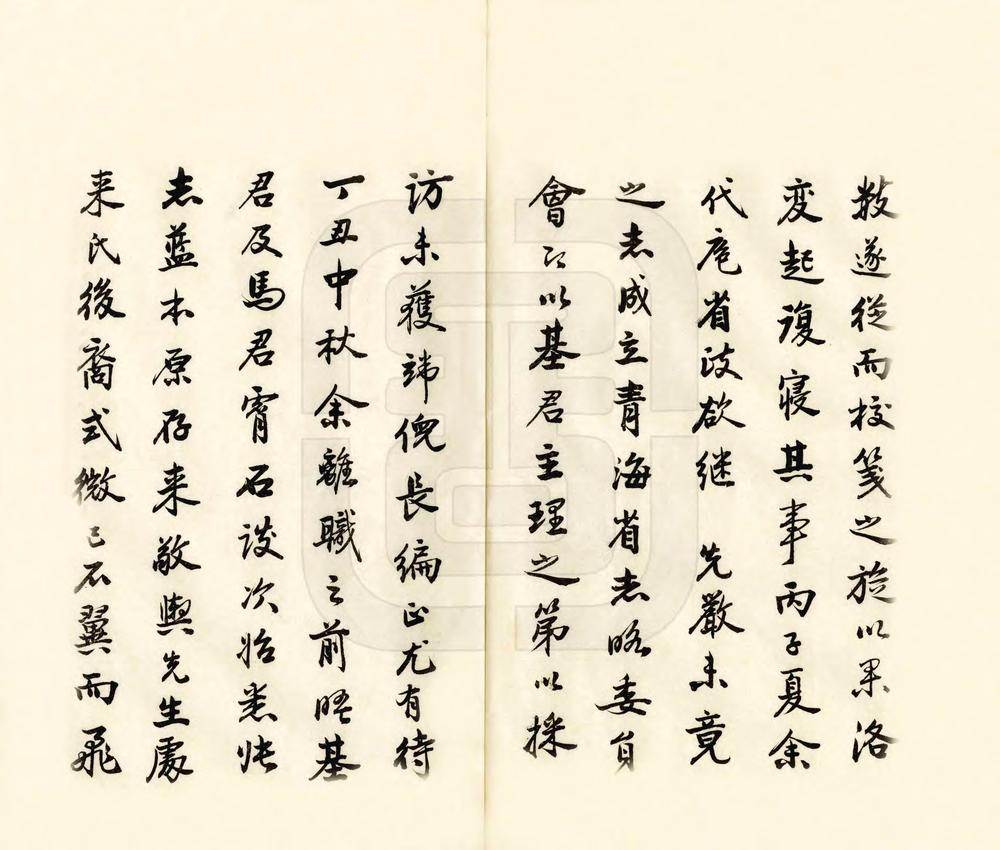 數遂從而校箋之旋以果洛
变起復寝其事丙子夏余
代庖省政欲继 先嚴未竟
之志成立青海省志略委員
會即以基君主理之第以採
訪未獲端倪長編正尤有待
丁丑中秋余離職之前晤基
君及馬君霄石談次始悉特
志蓝本原存来敬輿先生處
来氏後裔式微已不翼而飛